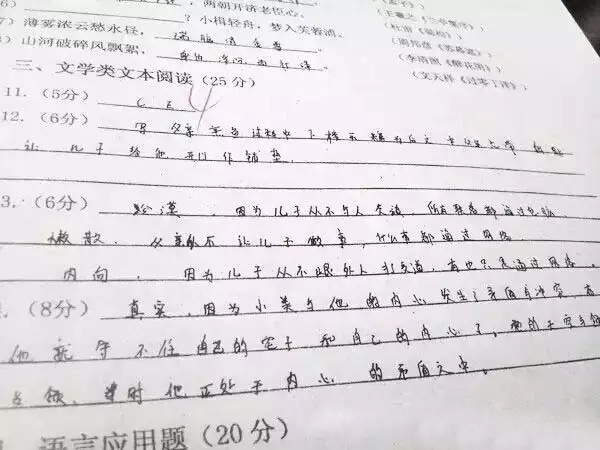 ，两朝开济老臣心。
？小楫轻舟，梦入芙蓉浦。 （王羲之《兰亭集序》）
7）薄雾浓云愁永昼， 瑞脑消金兽 。 （杜甫《蜀相》）
8）山河破碎风飘絮， 身世浮沉雨打萍 。 （周邦彦《苏幕遮》）
（李清照《醉花阴》）
三、文学类文本阅读（25分） （文天祥《过零丁洋》）
11.（5分） C E 4
12.（6分） 写父亲 过程中下 示 为后文
让儿子给他开门作铺垫.
3.（6分） 冷漠 。因为儿子从不与人交谈，所有 都通过电脑
懒散. 从 不让儿子做事，什么事都通过网络
内向 . 因为儿子从不跟外人打交道，有也只是通过网络。
（8分） 真实。因为小美与他的内心发生了矛盾与冲突，
他就守不住自己的 子和自己的内心了。
当时他正处于内心的矛盾之中。
语言应用题（20分）